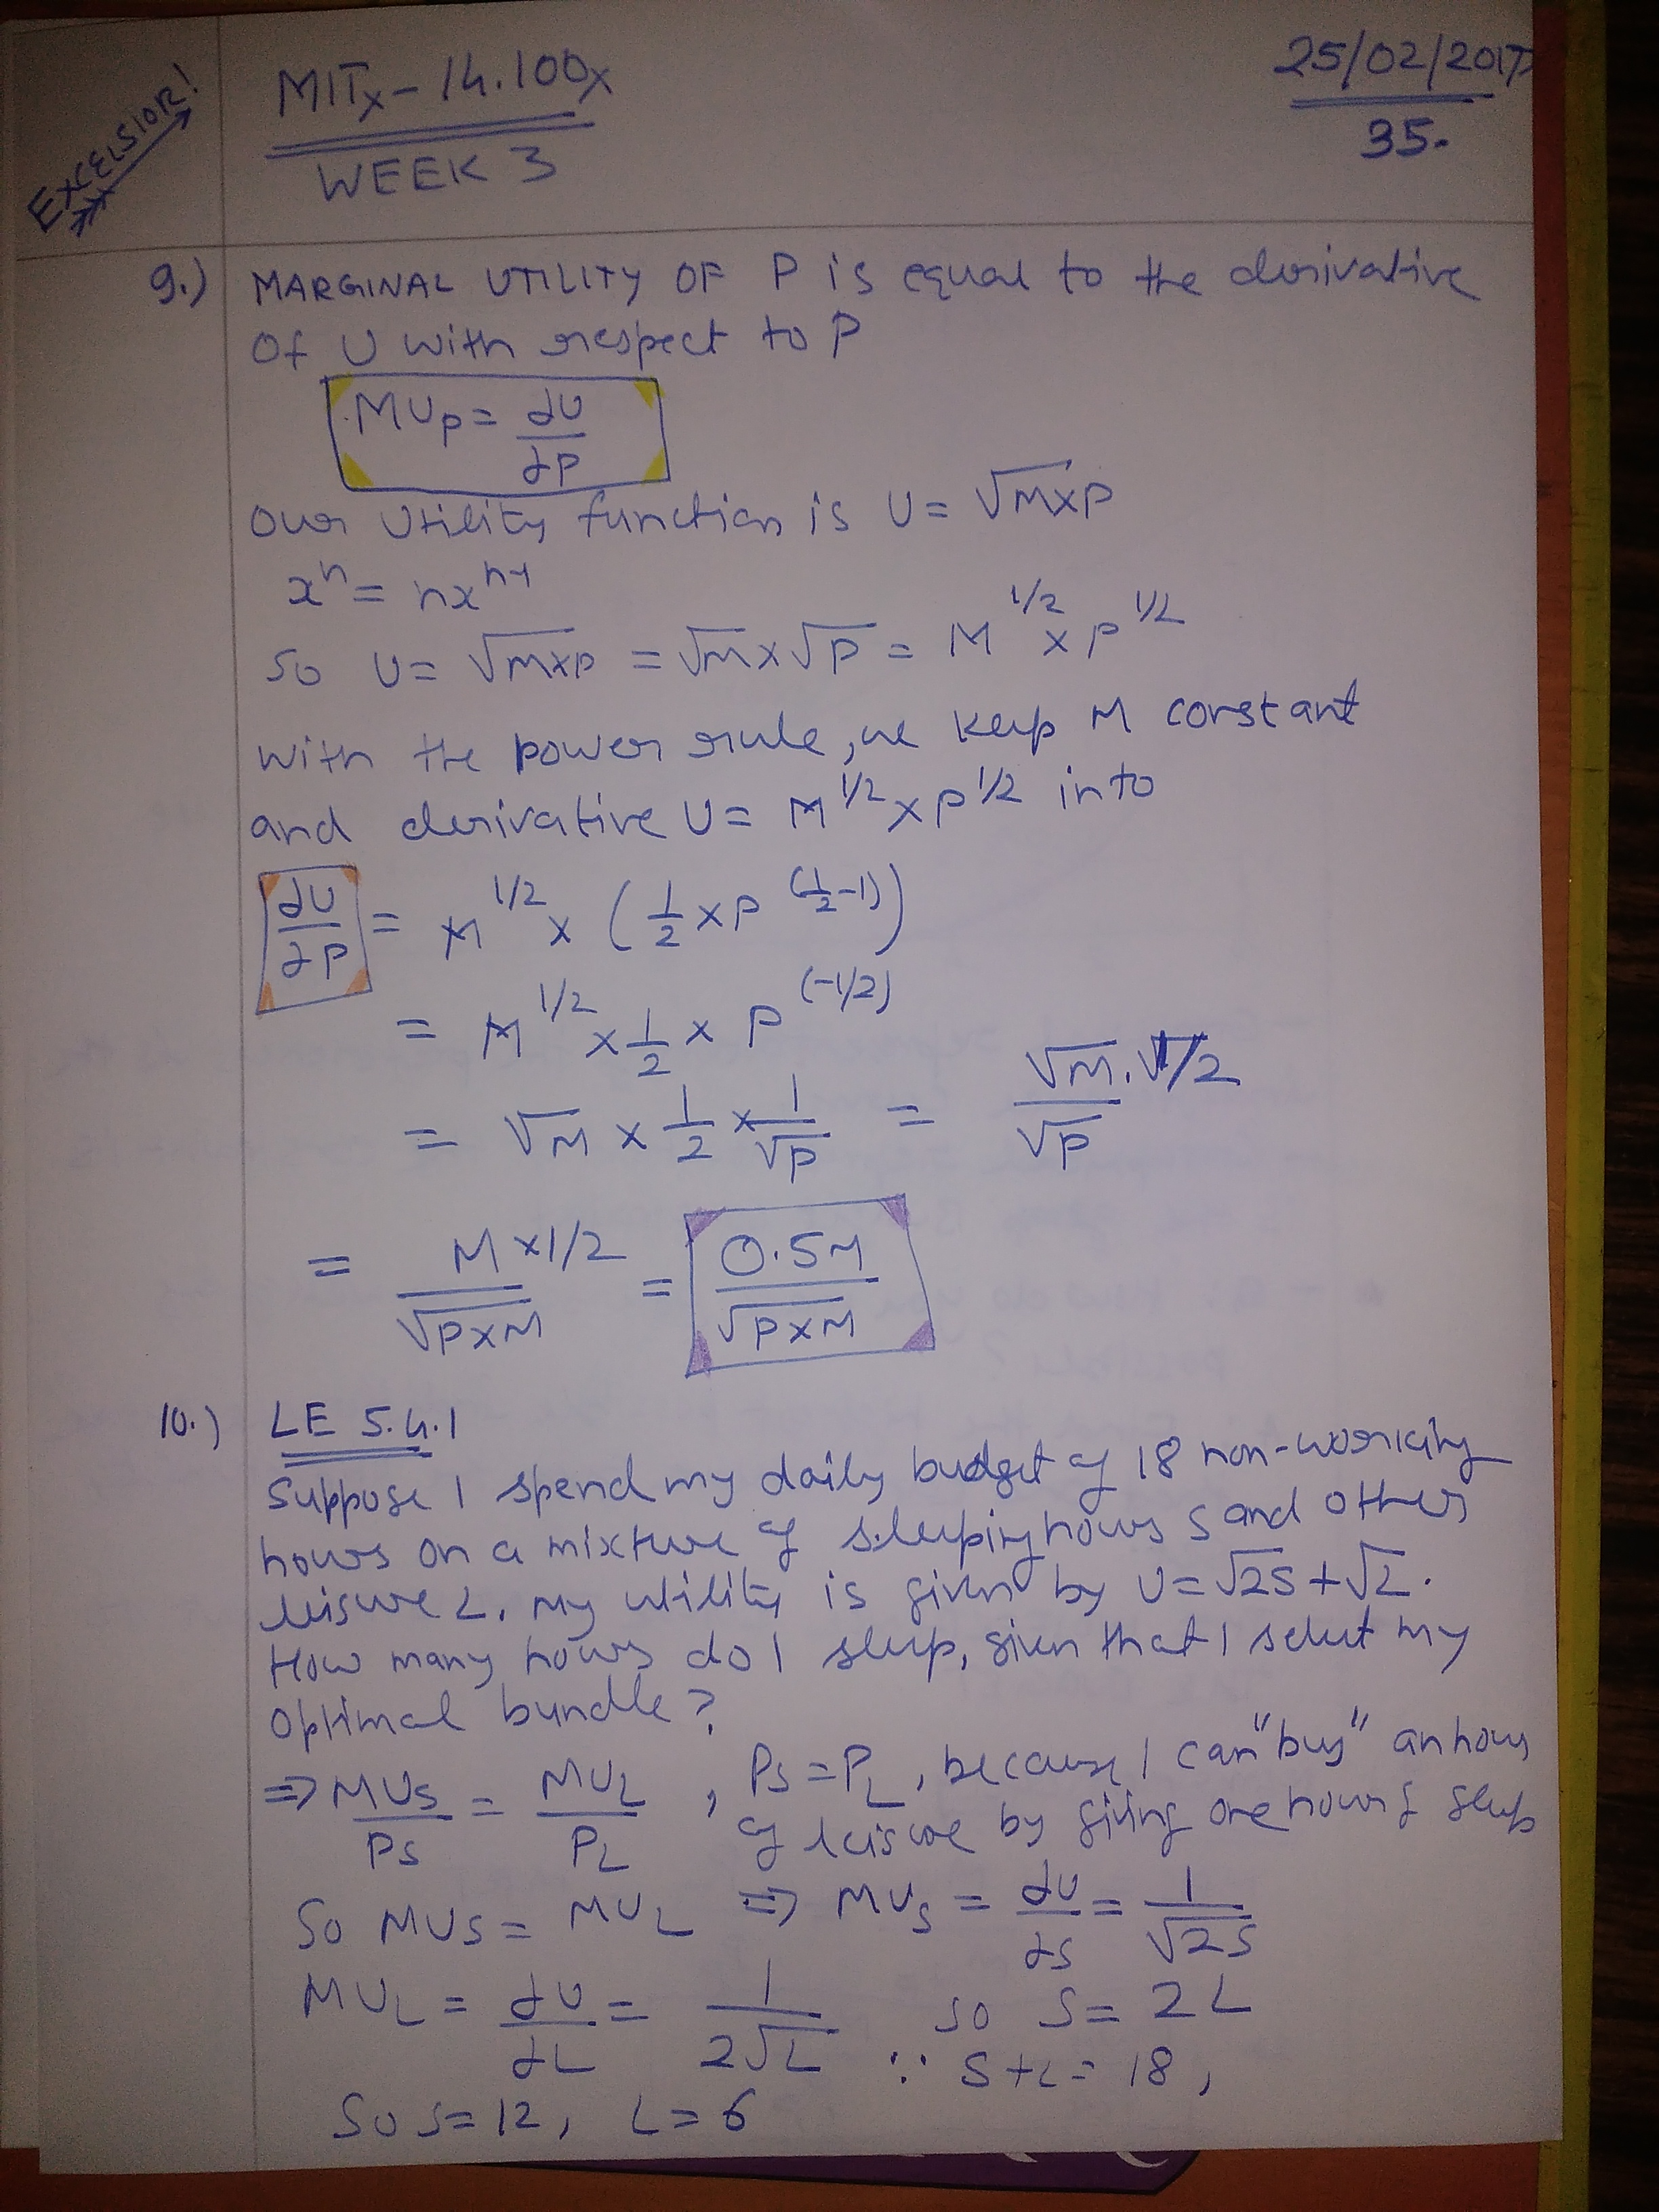 EXCELSIOR!
MITx-14.100x
WEEK 3
25/02/2017
35.
9.) MARGINAL UTILITY OF P is equal to the derivative
of U with respect to P
MUp = ∂U/∂P
Our Utility function is U = √M×P
x^n = nx^n-1
so U = √M×P = √M × √P = M^1/2 × P^1/2
with the power rule, we keep M constant
and derivative U = M^1/2 × P^1/2 into
∂U/∂P = M^1/2 × (1/2 × P^(1/2-1))
= M^1/2 × 1/2 × P^(-1/2)
= √M × 1/2 × 1/√P = √M . 1/2 / √P
= M × 1/2 / √P×M = 0.5M / √P×M
10.) LE 5.4.1
Suppose I spend my daily budget of 18 non-working
hours on a mixture of sleeping hours S and other
leisure L. My utility is given by U = √2S + √L.
How many hours do I sleep, given that I select my
optimal bundle?
⇒ MUS/PS = MUL/PL , PS = PL, because I can "buy" an hour
of leisure by giving one hour of sleep
So MUS = MUL ⇒ MUS = ∂U/∂S = 1/√2S
MUL = ∂U/∂L = 1/2√L so S = 2L
∵ S+L = 18,
So S = 12, L = 6